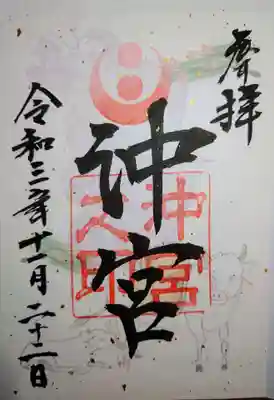 奉拝
沖宮
沖宮
之印
令和三年十一月二十一日